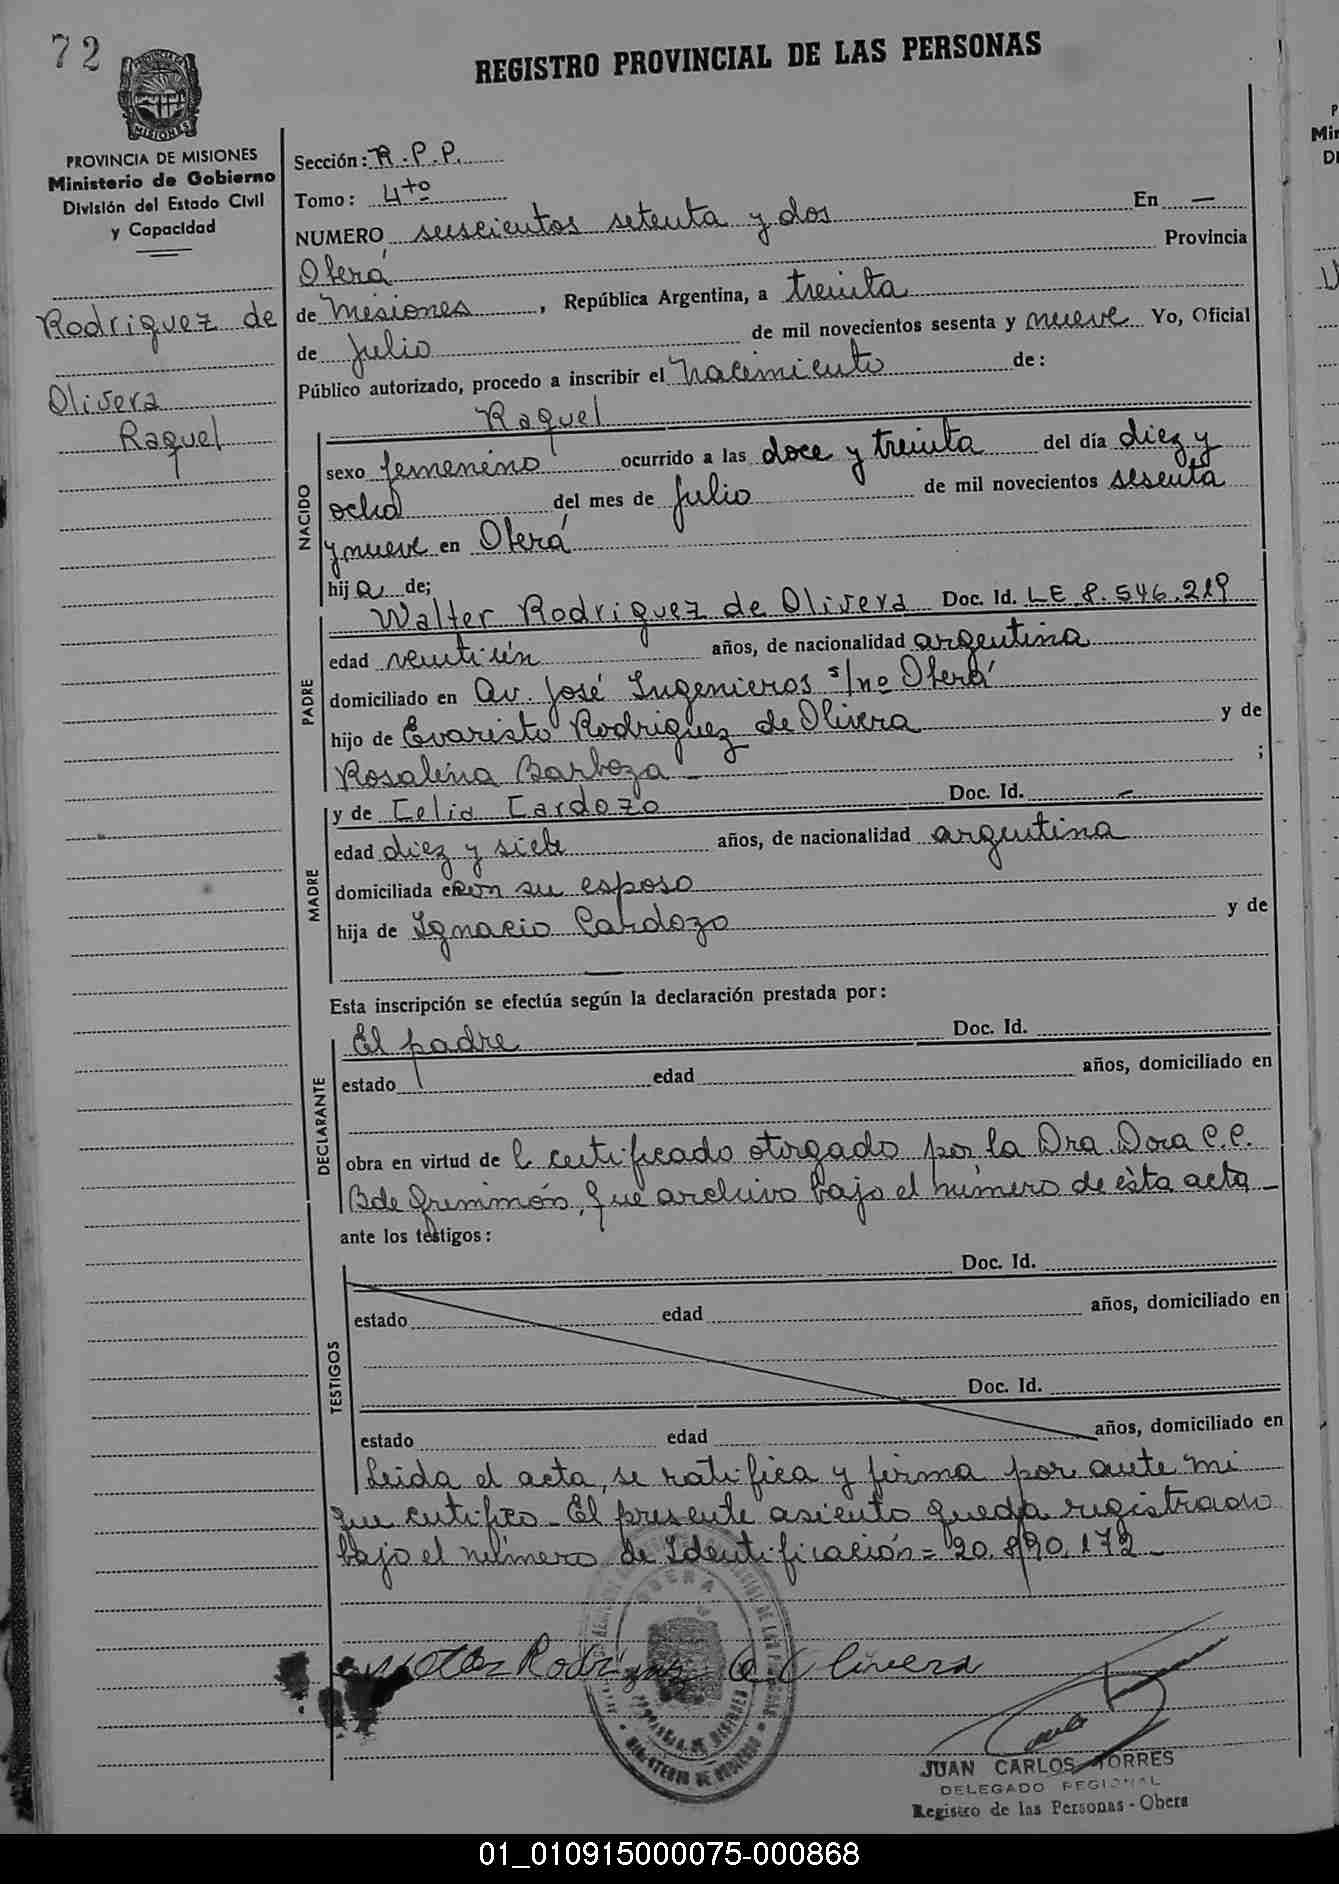 72
REGISTRO PROVINCIAL DE LAS PERSONAS
PROVINCIA DE MISIONES
Ministerio de Gobierno
División del Estado Civil
y Capacidad
Rodriguez de
Olivera
Raquel
Sección: R.P.P.
Tomo: 4to
NUMERO seiscientos setenta y dos En —
Oberá Provincia
de Misiones, República Argentina, a treinta
de Julio de mil novecientos sesenta y nueve Yo, Oficial
Público autorizado, procedo a inscribir el nacimiento de:
Raquel
NACIDO
sexo femenino ocurrido a las doce y treinta del día diez y
ocho del mes de Julio de mil novecientos sesenta
y nueve en Oberá
hija de;
PADRE
Walter Rodriguez de Olivera Doc. Id. LE 8.546.219
edad veintiún años, de nacionalidad argentina
domiciliado en Av. José Ingenieros s/no Oberá
hijo de Evaristo Rodriguez de Olivera y de
Rosalina Barboza ;
MADRE
y de Celia Cardozo Doc. Id. —
edad diez y siete años, de nacionalidad argentina
domiciliada con su esposo
hija de Ignacio Cardozo y de
—
Esta inscripción se efectúa según la declaración prestada por:
DECLARANTE
El padre Doc. Id.
estado edad años, domiciliado en
obra en virtud del certificado otorgado por la Dra. Dora C.C.
B de que archivo bajo el número de ésta acta
ante los testigos:
TESTIGOS
Doc. Id.
estado edad años, domiciliado en
Doc. Id.
estado edad años, domiciliado en
Leida el acta, se ratifica y firma por ante mi
que certifico. El presente asiento queda registrado
bajo el número de Identificación = 20.890.172
Rodriguez de Olivera
JUAN CARLOS TORRES
DELEGADO REGIONAL
Registro de las Personas - Obera
01_010915000075-000868